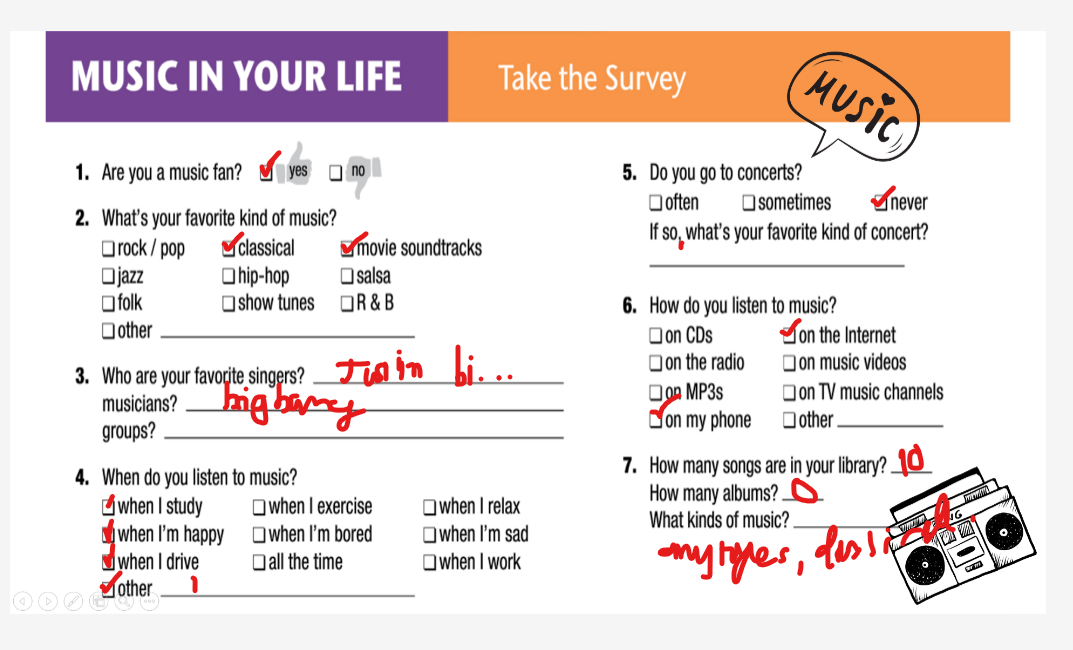 MUSIC IN YOUR LIFE
Take the Survey
MUSIC
1. Are you a music fan? yes no
2. What's your favorite kind of music?
rock / pop classical movie soundtracks
jazz hip-hop salsa
folk show tunes R & B
other
3. Who are your favorite singers? bi...
musicians? big bang
groups?
4. When do you listen to music?
when I study when I exercise when I relax
when I'm happy when I'm bored when I'm sad
when I drive all the time when I work
other
5. Do you go to concerts?
often sometimes never
If so, what's your favorite kind of concert?
6. How do you listen to music?
on CDs on the Internet
on the radio on music videos
on MP3s on TV music channels
on my phone other
7. How many songs are in your library? 10
How many albums? 0
What kinds of music?